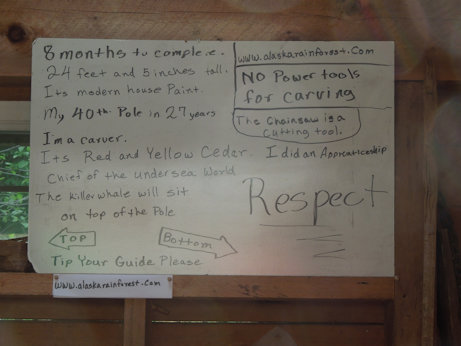 8 months to complete.
24 feet and 5 inches tall.
Its modern house Paint.
My 40th Pole in 27 years
I'm a carver.
Its Red and Yellow Cedar. I did an Apprenticeship
Chief of the undersea World
The killerwhale will sit
on top of the Pole
Top
Bottom
Tip Your Guide Please
www.alaskarainforest.com
No Power tools
for carving
The Chainsaw is a
cutting tool.
Respect
www.alaskarainforest.com